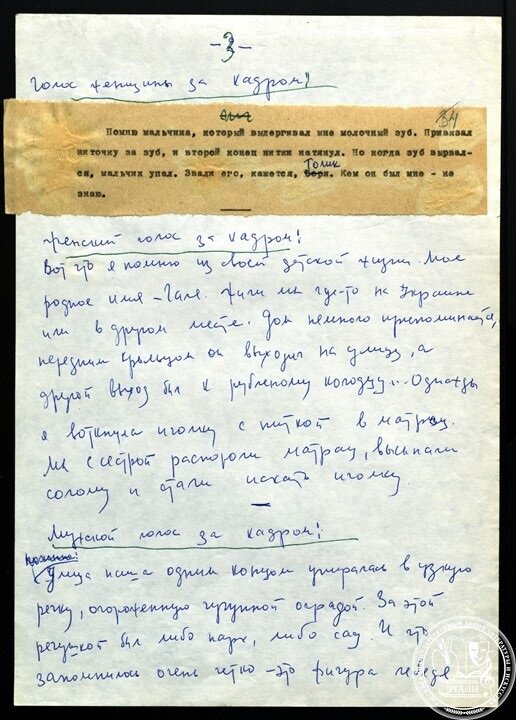 -3-
Голос женщины за кадром:
84
Помню мальчика, который выдергивал мне молочный зуб. Привязал
ниточку за зуб, и второй конец нитки натянул. Но когда зуб вырвал-
Толик
ся, мальчик упал. Звали его, кажется, Боря. Кем он был мне - не
знаю.
Женский голос за кадром:
Вот что я помню из своей детской жизни. Мое
родное имя - Галя. Жили мы где-то на Украине
или в другом месте. Дом немного припоминается,
передним крыльцом он выходил на улицу, а
другой выход был к рубленому колодцу... Однажды
я воткнула иголку с ниткой в матрац.
Мы с сестрой распороли матрац, высыпали
солому и стали искать иголку.
Мужской голос за кадром:
Улица наша одним концом упиралась в узкую
речку, огороженную чугунной оградой. За этой
речушкой был либо парк, либо сад. И что
запомнилось очень четко - это фигура лебедя
РГАЛИ